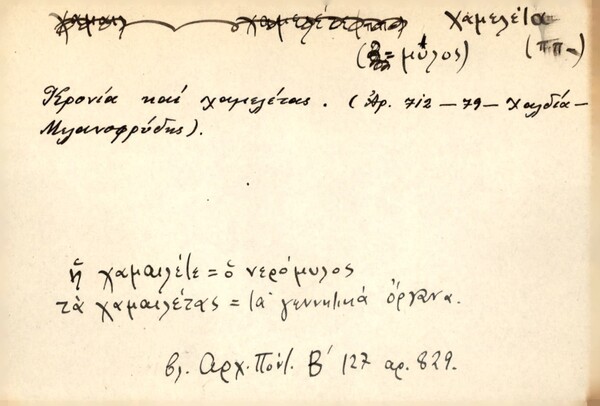 χαμελέτα
(= μύλος) (ππ-)
Κρονία καί χαμελέτας. (Ἀρ. 712-79-Χαλδία-
Μελανοφρύδης).
ἡ χαμαιλέτε = ὁ νερόμυλος
τὰ χαμαιλέτας = τα γεννητικά ὄργανα.
βλ. Αρχ. Πόντ. Β΄ 127 αρ. 829.